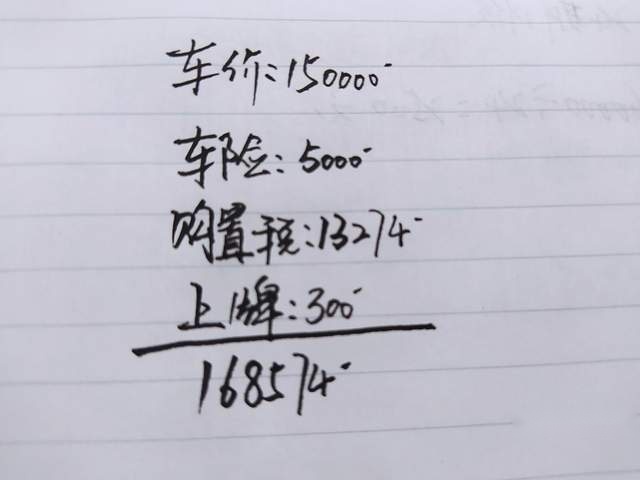 车价:150000
车险:5000
购置税:13274
上牌:300
168574